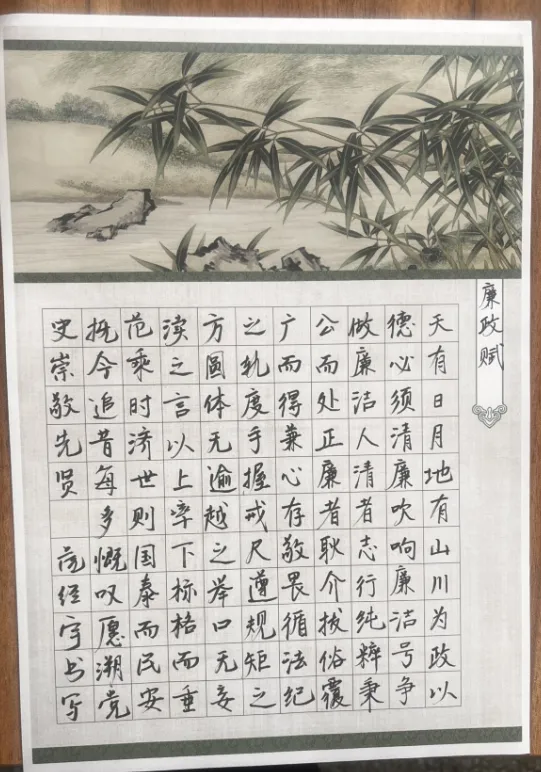 廉政赋
天有日月地有山川为政以
德必须清廉吹响廉洁号争
做廉洁人清者志行纯粹秉
公而处正廉者耿介拔俗覆
广而得兼心存敬畏循法纪
之轨度手握戒尺遵规矩之
方圆体无逾越之举口无妄
渎之言以上率下标格而垂
范乘时济世则国泰而民安
抚今追昔每多慨叹愿溯党
史崇敬先贤 范经宇书写